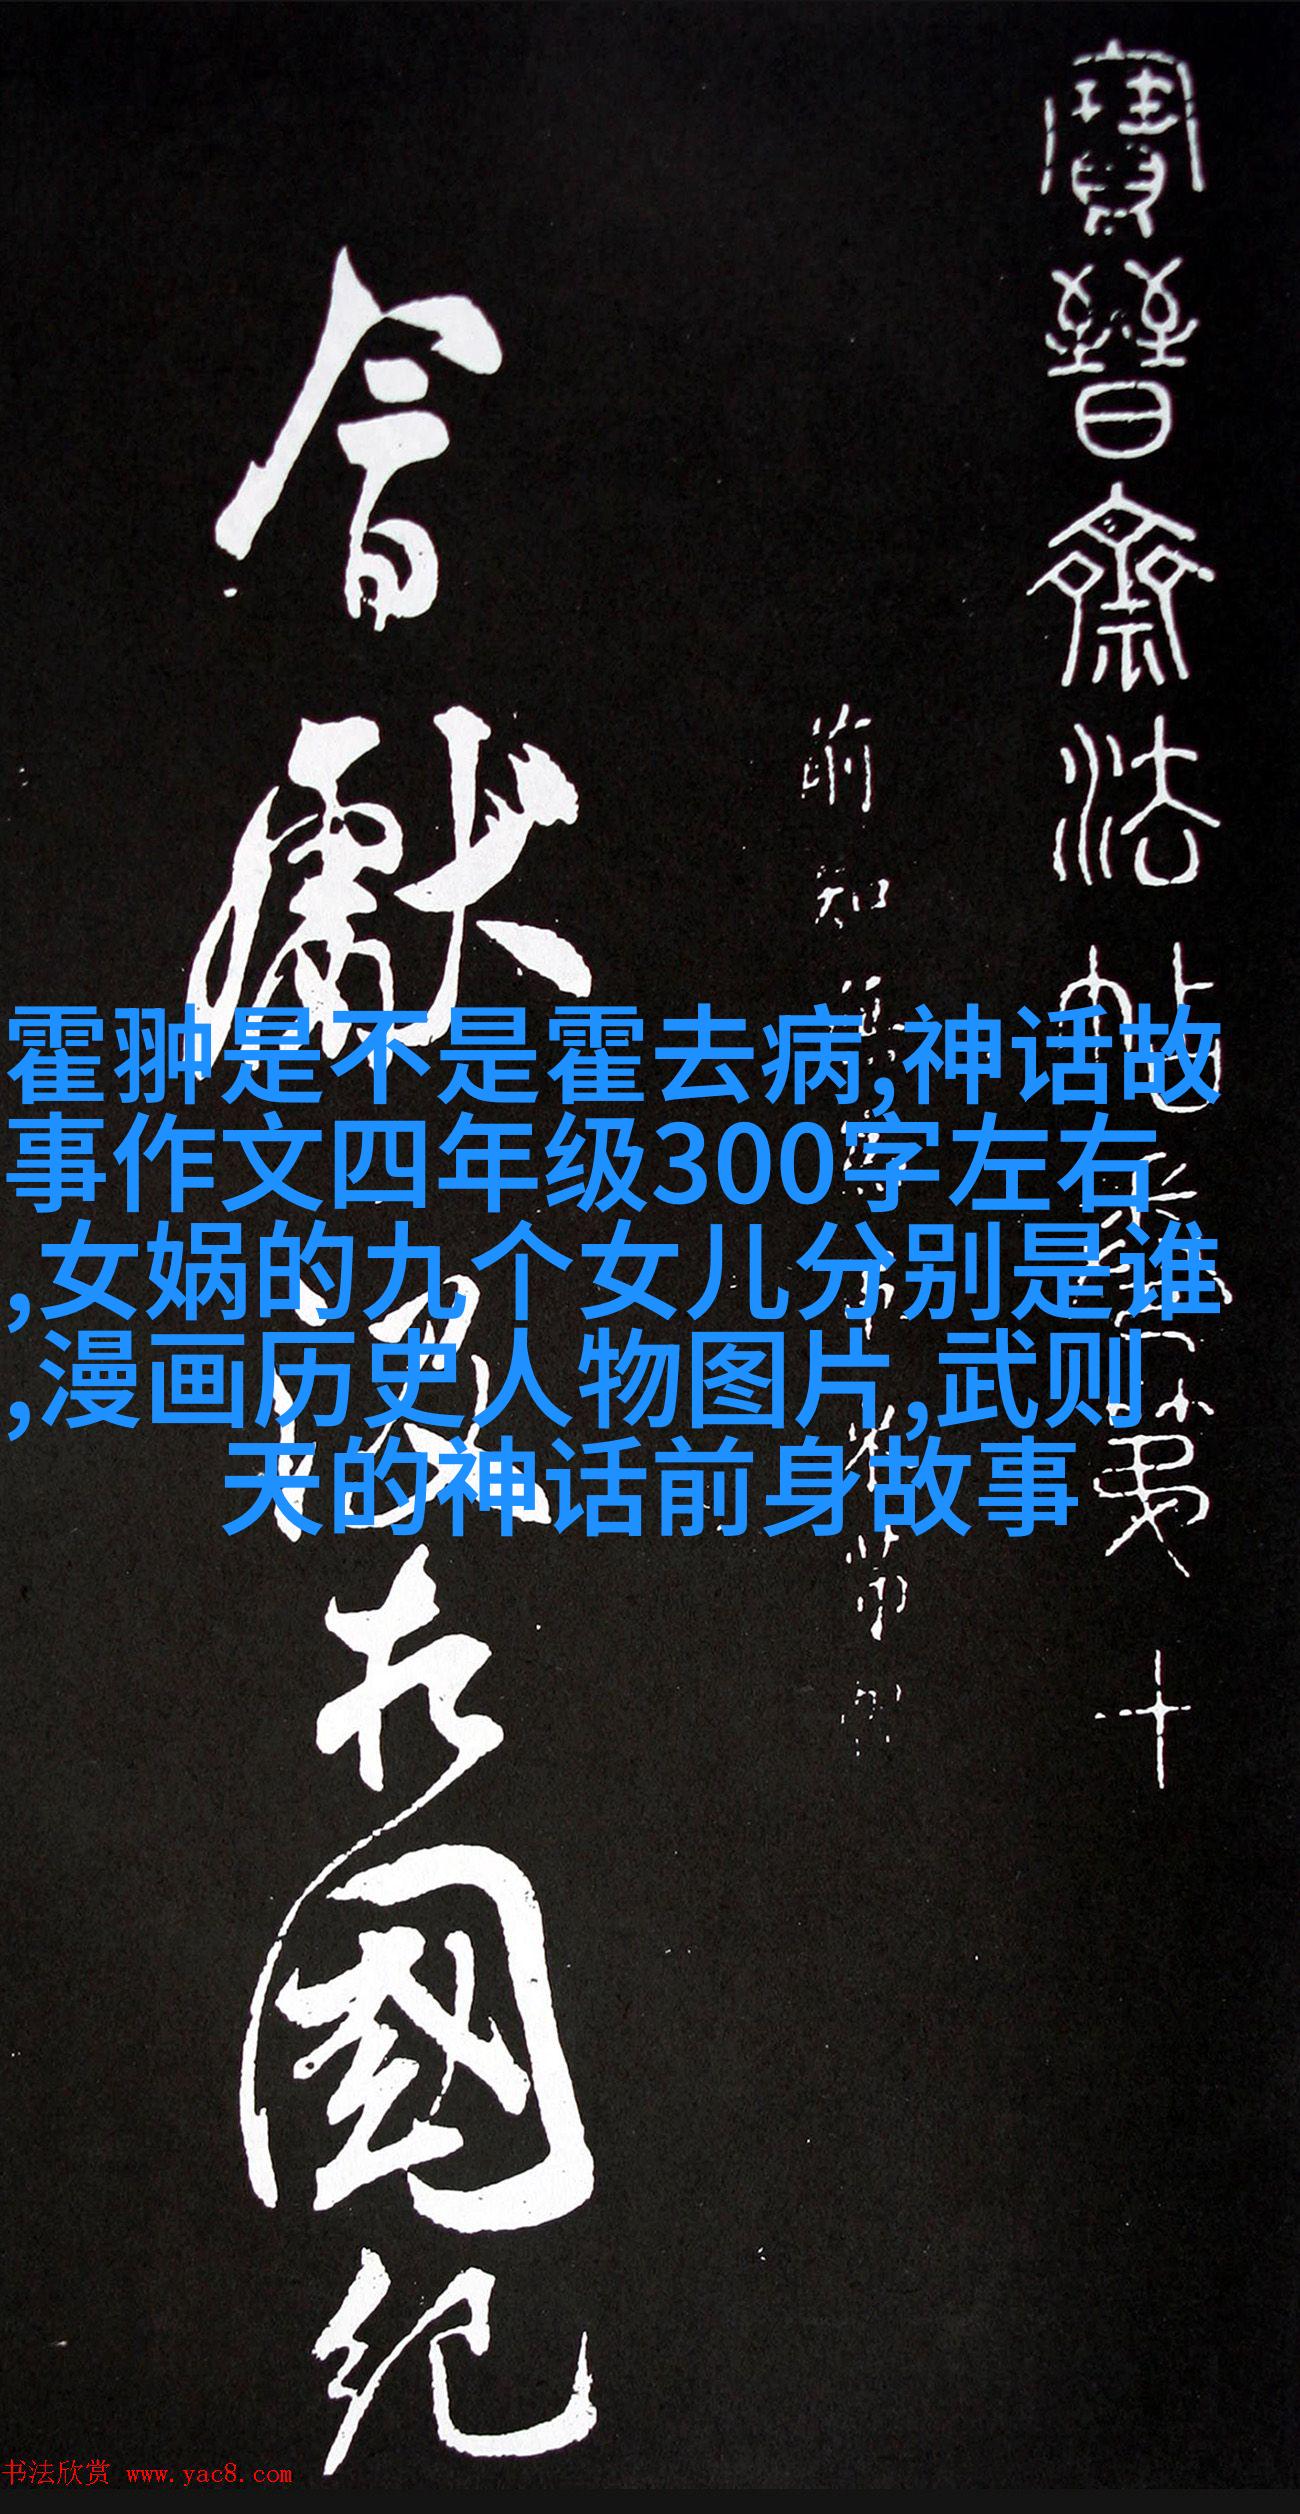 寶晉齋法帖卷第十
會獻汉相國紀
霍翀是不是霍去病,神话故
事作文四年级300字左右
,女娲的九个女儿分别是谁
,漫画历史人物图片,武则
天的神话前身故事
书法欣赏 www.yac8.com